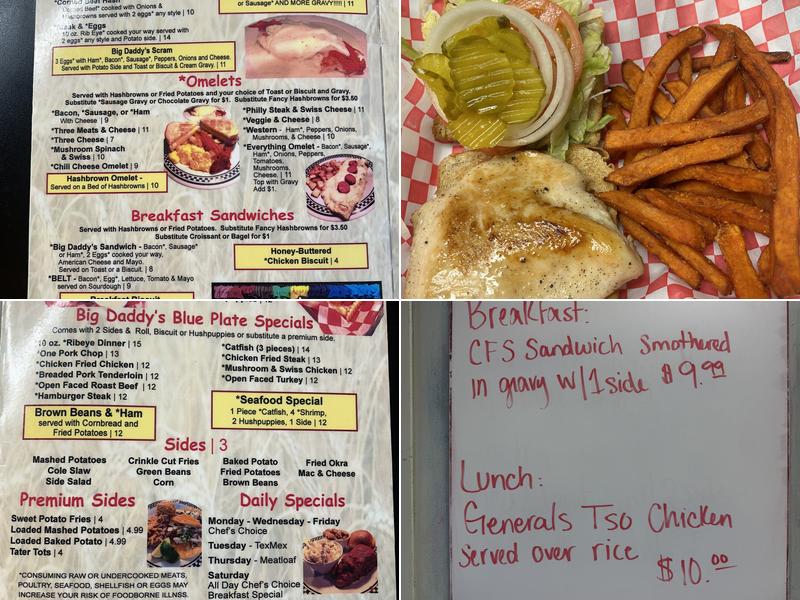 Corned Beef Hash
"Corned Beef" cooked with Onions &
Hashbrowns served with 2 eggs* any style | 10
or Sausage* AND MORE GRAVY!!!! | 11
*Steak & *Eggs
10 oz. Rib Eye* cooked your way served with
2 eggs* any style and Potato side. | 14
Big Daddy's Scram
3 Eggs* with Ham*, Bacon*, Sausage*, Peppers, Onions and Cheese.
Served with Potato Side and Toast or Biscuit & Cream Gravy. | 11
*Omelets
Served with Hashbrowns or Fried Potatoes and your choice of Toast or Biscuit and Gravy.
Substitute *Sausage Gravy or Chocolate Gravy for $1. Substitute Fancy Hashbrowns for $3.50
*Bacon, *Sausage, or *Ham
With Cheese | 9
*Three Meats & Cheese | 11
*Three Cheese | 7
*Mushroom Spinach
& Swiss | 10
*Chili Cheese Omelet | 9
Hashbrown Omelet -
Served on a Bed of Hashbrowns | 10
*Philly Steak & Swiss Cheese | 11
*Veggie & Cheese | 8
*Western - Ham*, Peppers, Onions,
Mushrooms, & Cheese | 10
*Everything Omelet - Bacon*, Sausage*,
Ham*, Onions, Peppers,
Tomatoes,
Mushrooms,
Cheese. | 11
Top with Gravy
Add $1.
Breakfast Sandwiches
Served with Hashbrowns or Fried Potatoes. Substitute Fancy Hashbrowns for $3.50
Substitute Croissant or Bagel for $1
*Big Daddy's Sandwich - Bacon*, Sausage*
or Ham*, 2 Eggs* cooked your way,
American Cheese and Mayo.
Served on Toast or a Biscuit. | 8
*BELT - Bacon*, Egg*, Lettuce, Tomato & Mayo
served on Sourdough | 9
Honey-Buttered
*Chicken Biscuit | 4
Breakfast Biscuit
Big Daddy's Blue Plate Specials
Comes with 2 Sides & Roll, Biscuit or Hushpuppies or substitute a premium side.
10 oz. *Ribeye Dinner | 15
*One Pork Chop | 13
*Chicken Fried Chicken | 12
*Breaded Pork Tenderloin | 12
*Open Faced Roast Beef | 12
*Hamburger Steak | 12
*Catfish (3 pieces) | 14
*Chicken Fried Steak | 13
*Mushroom & Swiss Chicken | 12
*Open Faced Turkey | 12
Brown Beans & *Ham
served with Cornbread and
Fried Potatoes | 12
*Seafood Special
1 Piece *Catfish, 4 *Shrimp,
2 Hushpuppies, 1 Side | 12
Sides | 3
Mashed Potatoes
Cole Slaw
Side Salad
Crinkle Cut Fries
Green Beans
Corn
Baked Potato
Fried Potatoes
Brown Beans
Fried Okra
Mac & Cheese
Premium Sides
Sweet Potato Fries | 4
Loaded Mashed Potatoes | 4.99
Loaded Baked Potato | 4.99
Tater Tots | 4
Daily Specials
Monday - Wednesday - Friday
Chef's Choice
Tuesday - TexMex
Thursday - Meatloaf
Saturday
All Day Chef's Choice
Breakfast Special
*CONSUMING RAW OR UNDERCOOKED MEATS,
POULTRY, SEAFOOD, SHELLFISH OR EGGS MAY
INCREASE YOUR RISK OF FOODBORNE ILLNSS.
Breakfast:
CFS Sandwich Smothered
in gravy w/1 side $9.99
Lunch:
Generals Tso Chicken
Served over rice
$10.00